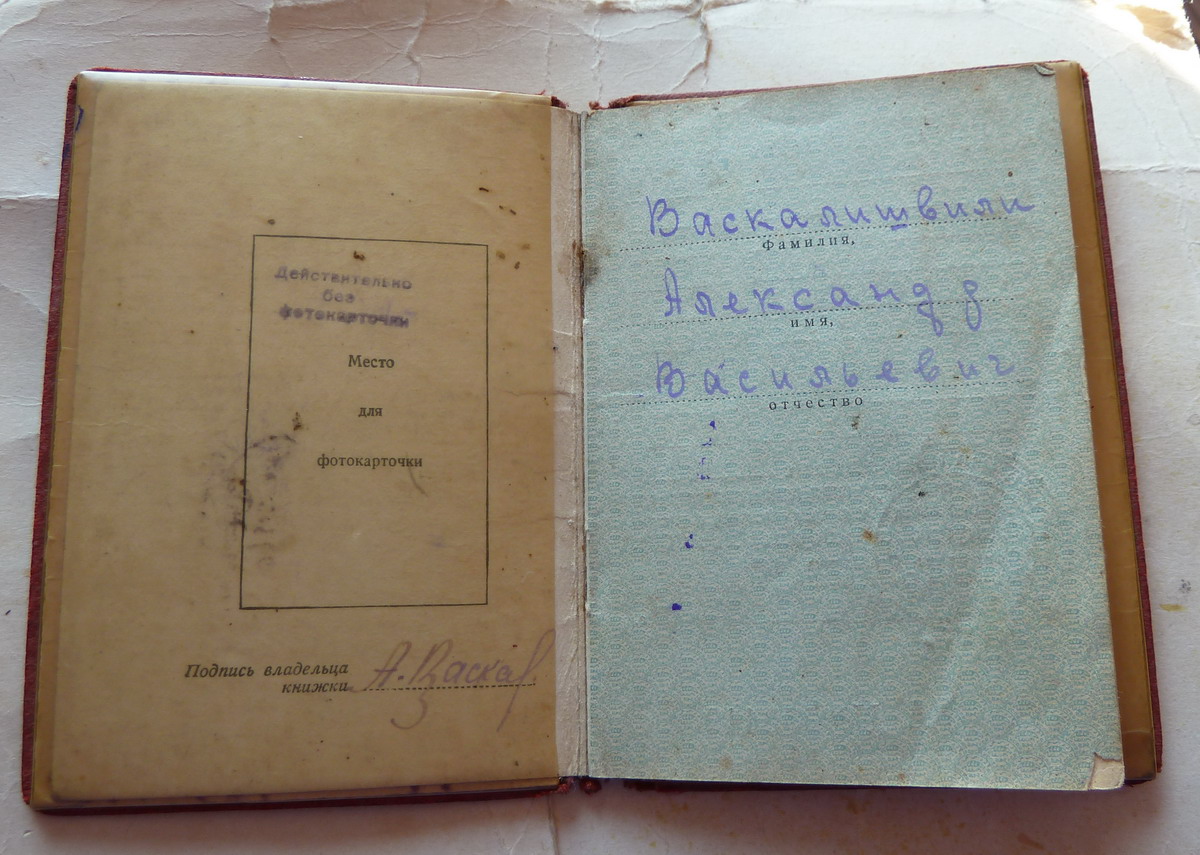 Действительно
без
фотокарточки
Место
для
фотокарточки
Подпись владельца
книжки
А. Васка
Васкалишвили
фамилия,
Александр
имя,
Васильевич
отчество